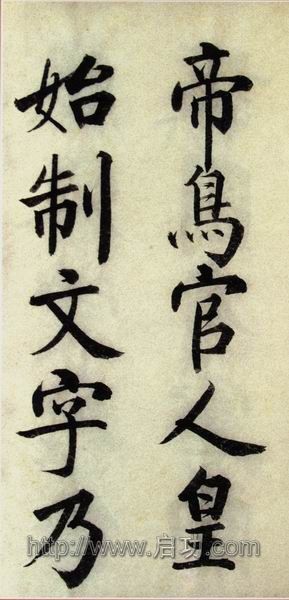 帝鳥官人皇
始制文字乃
http://www.启功.com